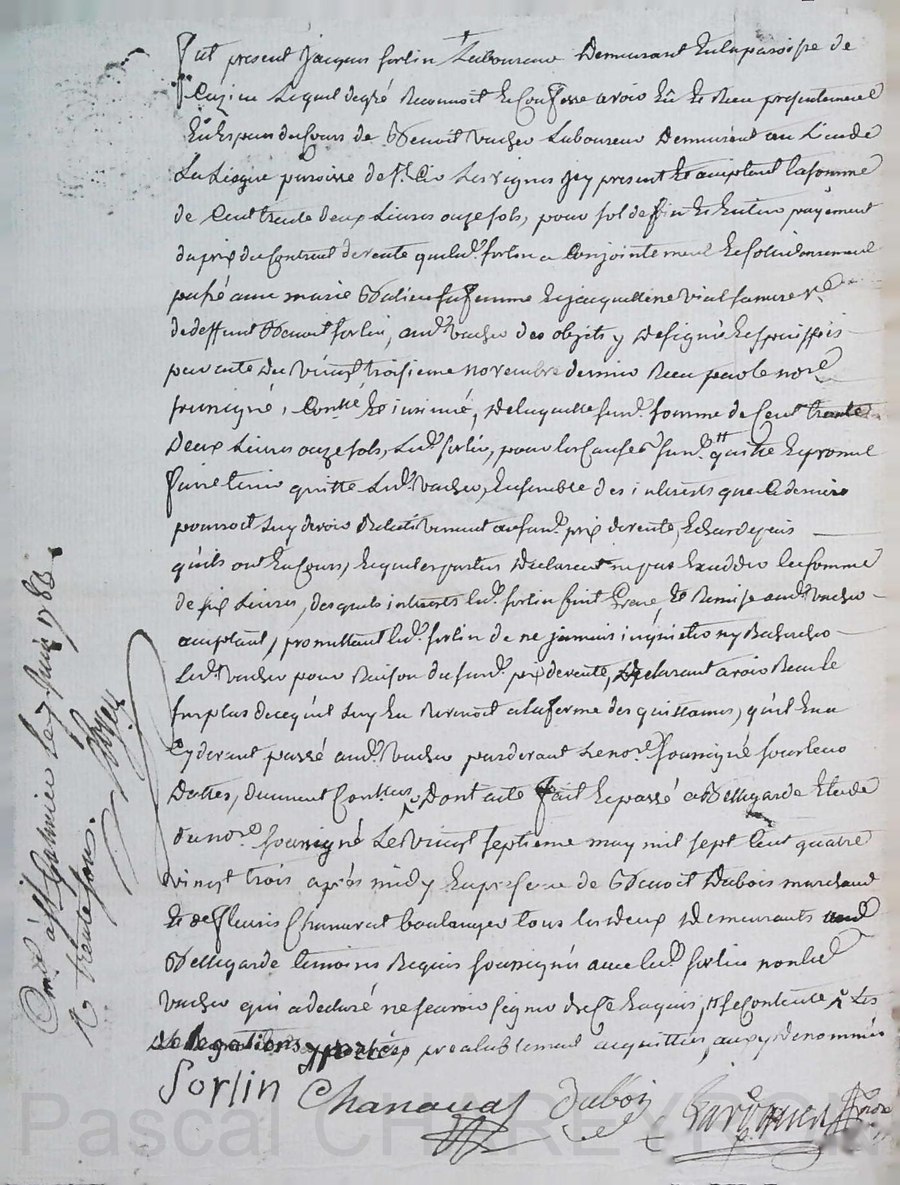 fut present Jacques Sorlin Laboureur Demeurant En la paroisse de
Cuzieu Lequel degré Reconnoit Et Confesse avoir Eû et Reçu presentement
de Benoit Vacher Laboureur Demeurant au Lieu de
paroisse de St. Cir Les vignes Jcy present Et acceptant la somme
de Cent trente deux Livres onze sols, pour solde fin Et Entier payement
du prix du Contrat de vente que led. Sorlin a Conjointement Et solidairement
passé avec marie sa femme Et jacquelline vial sa mere ve.
de deffunt Benoit Sorlin, aud. Vacher des objets y Designés Et
par acte Du vingt troisieme novembre dernier Reçu par le nore.
soussigné, Contlé Et insinué, De laquelle susd. somme de Cent trente
Deux Livres onze sols, Led. Sorlin, pour les Causes susd. quitte Et promet
faire tenir quitte Led. Vacher, Ensemble des interests que Ce dernier
pourroit Luy devoir Relativement au susd. prix de vente, Et depuis
qu'ils ont En Cours, Lesquels parties Declarent ne pas Exceder la somme
de six Livres, desquels interests led. Sorlin fait Grace Et Remise aud. Vacher
acceptant, promettant led. Sorlin de ne jamais inquieter ny Rechercher
Led. Vacher pour Raison du susd. prix de vente, Declarant avoir Reçu le
surplus de ce qu'il Luy En Revenoit a la forme des quittances, qu'il En a
Cy devant passé aud. Vacher pardevant Le nore. soussigné sous leurs
Dattes, duement Contllées, Dont acte fait Et passé a Bellegarde Etude
du nore. soussigné Le vingt septieme may mil sept Cent quatre
vingt trois après midy En presence de Benoit Dubois marchand
Et de fleuris Chanavat boulanger tous les deux Demeurants aud.
Bellegarde temoins Requis soussignés avec led. Sorlin non led.
Vacher qui a declaré ne scavoir signer de ce Enquis, Les
delegations y portées prealablement acquittées aux y denommés
Sorlin Chanavat Dubois
Con.lé à St Galmier Le 7 Juin 1783
R. trente sous.
Pascal CHAREYRON